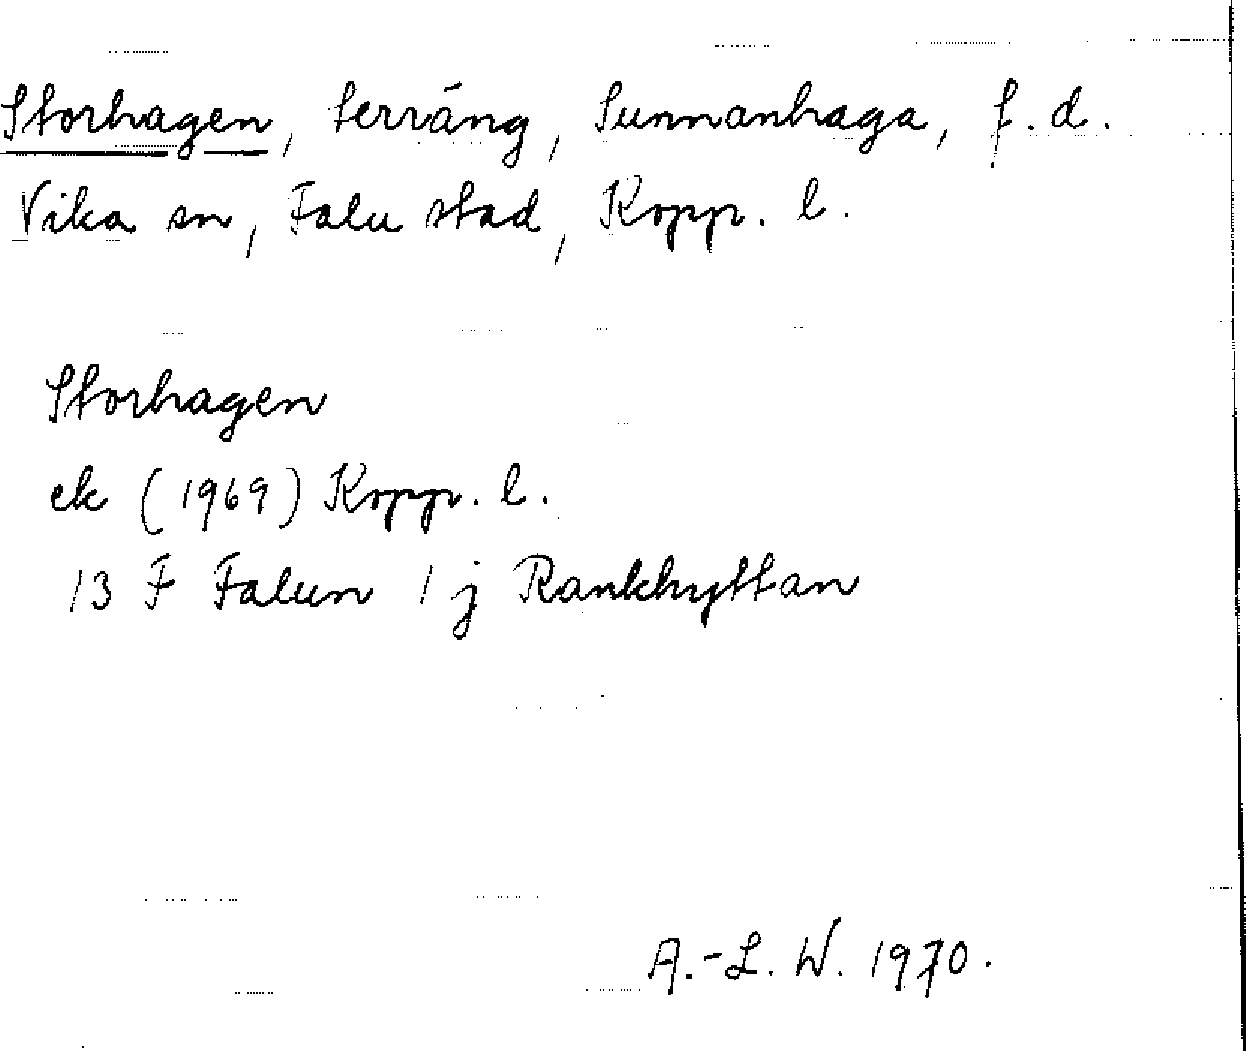 Storhagen, terräng, Sunnanhaga, f.d.
Vika sn, Falu stad, Kopp. l.
Storhagen
ek (1969) Kopp. l.
13 F Falun 1 j Rankhyttan
A.-L. W. 1970.